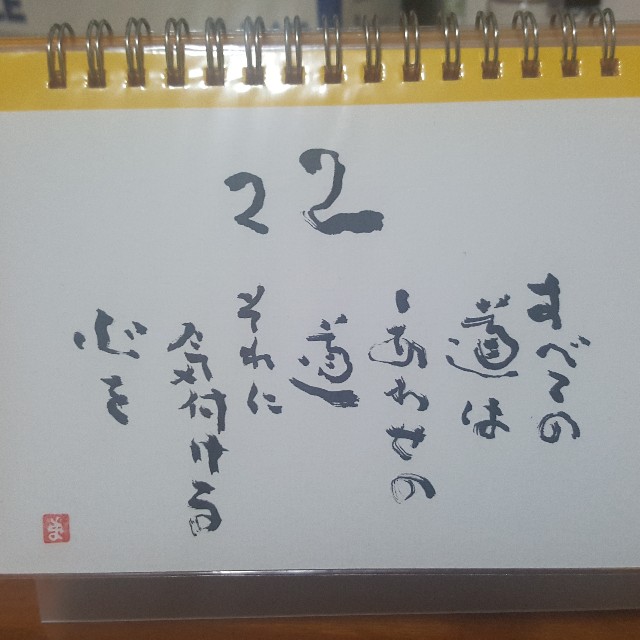 22
すべての
道は
しあわせの
道
それに
気付ける
心を